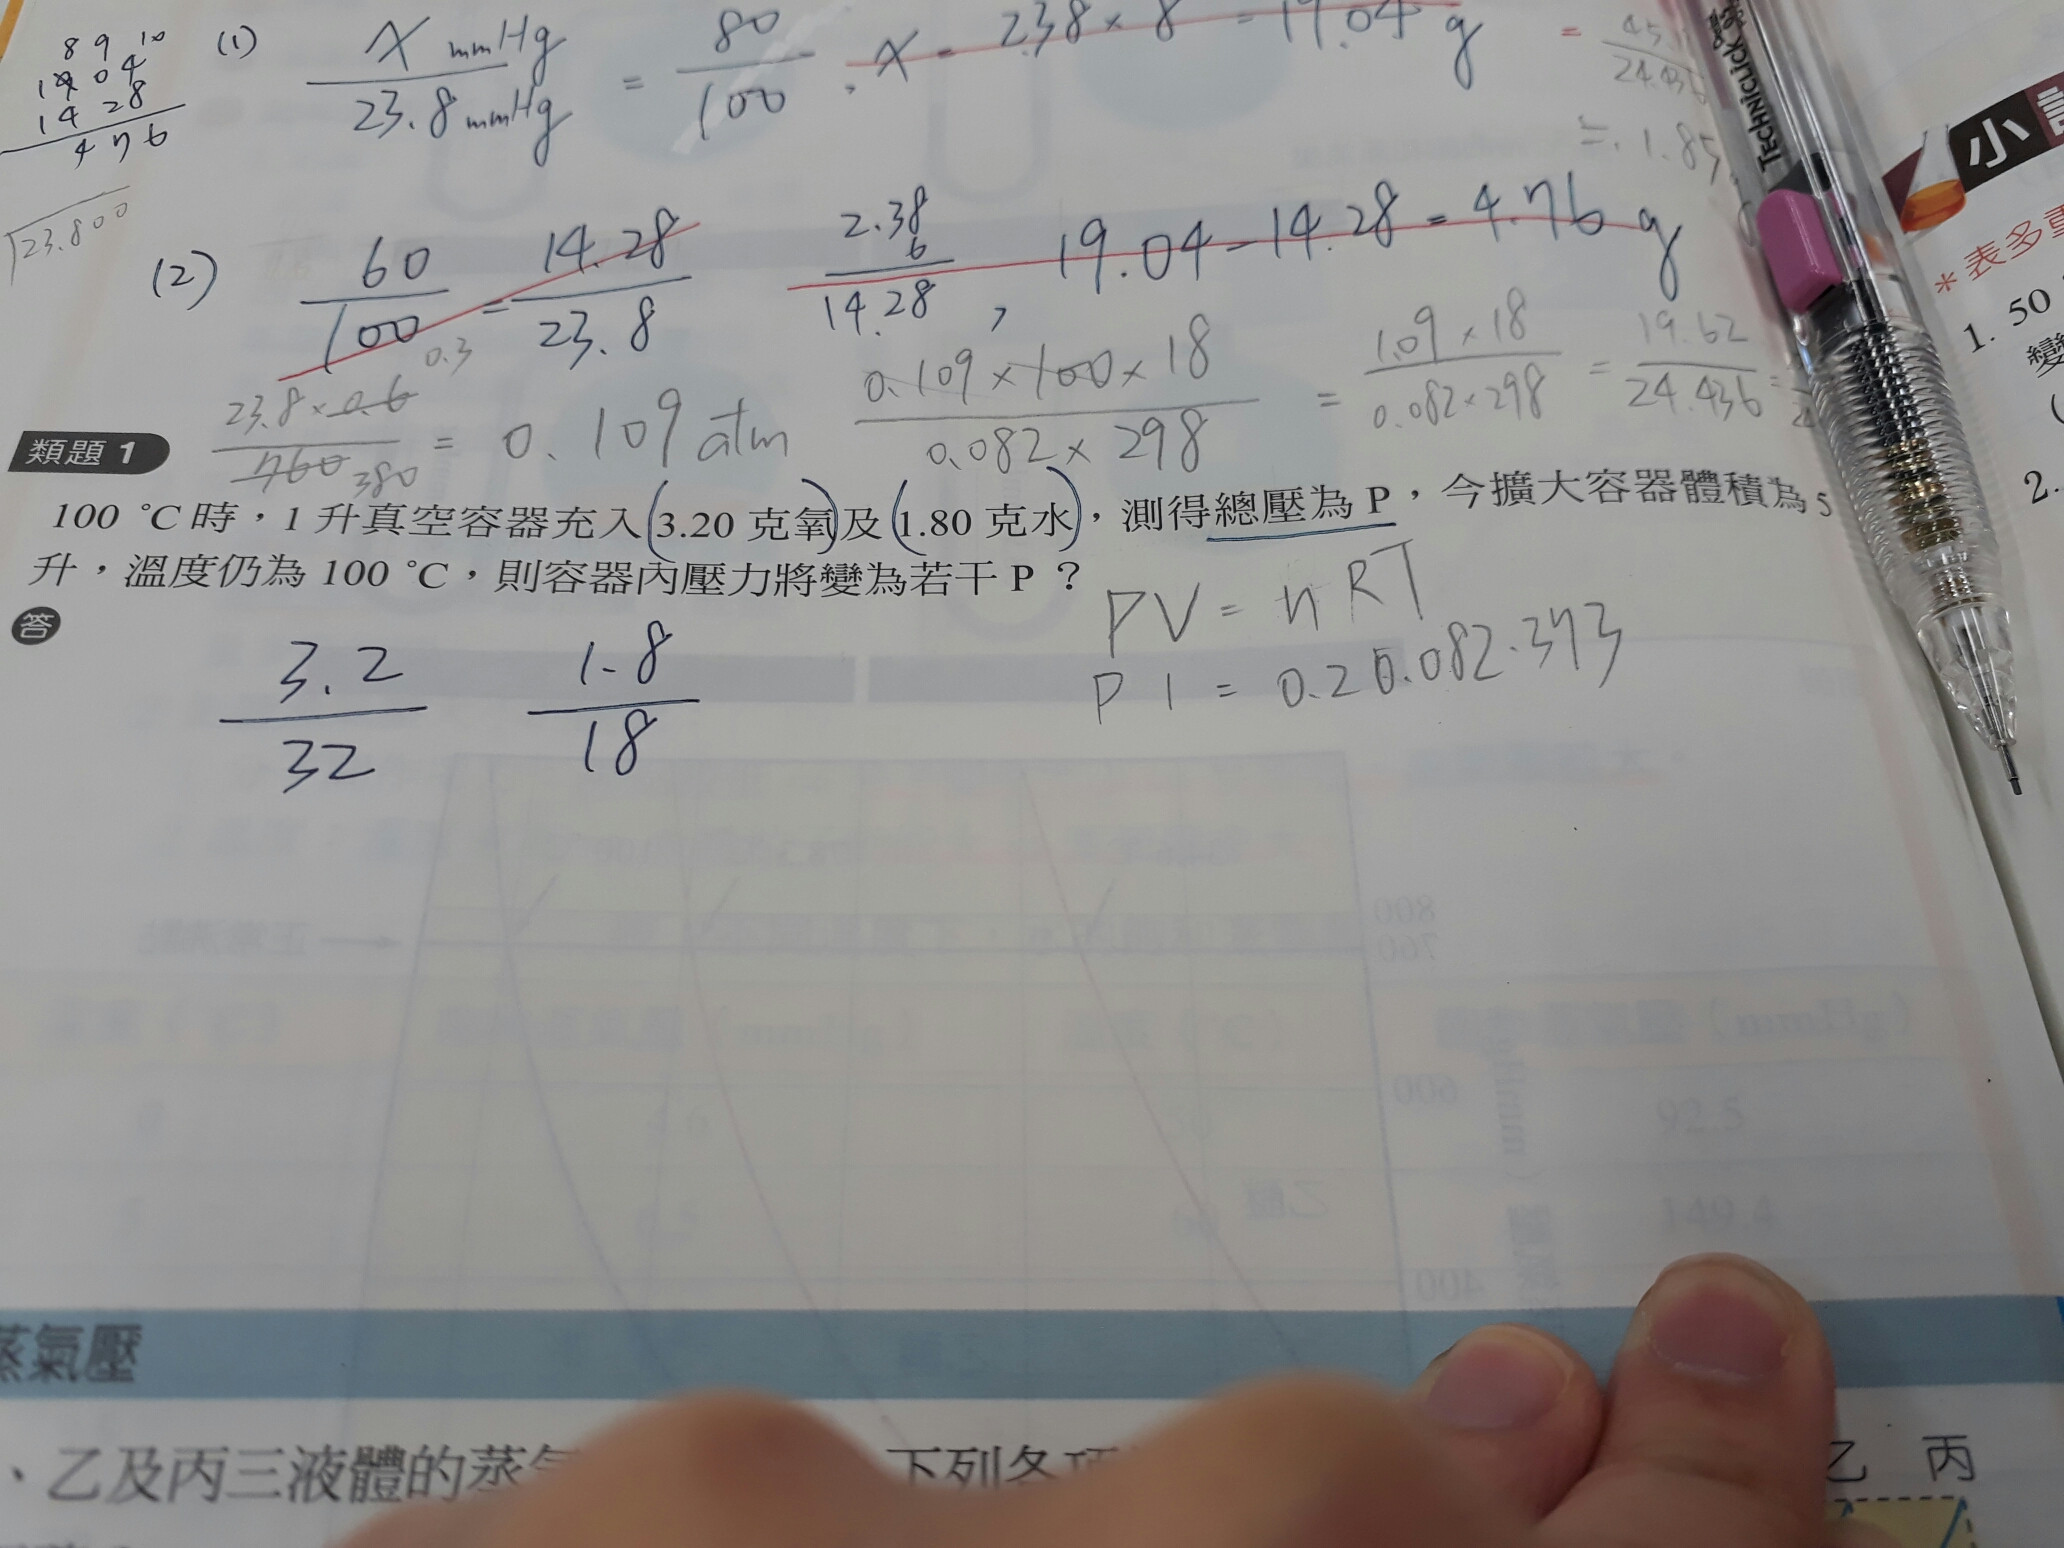 8 9 10
19 04
14 28
4 76
23.800
(1) X mmHg / 23.8 mmHg = 80 / 100 , x = 2.38 × 8 = 19.04 g
= 45. / 24.436
≒ 1.85
(2) 60 / 100 = 14.28 / 23.8
2.38
6
14.28 , 19.04 - 14.28 = 4.76 g
23.8 × 0.6 0.3 / 760 380 = 0.109 atm
0.109 × 100 × 18 / 0.082 × 298 = 1.09 × 18 / 0.082 × 298 = 19.62 / 24.436 =
類題 1
100 ℃ 時，1 升真空容器充入(3.20 克氧)及(1.80 克水)，測得總壓為 P，今擴大容器體積為 5
升，溫度仍為 100 ℃，則容器內壓力將變為若干 P？
答
3.2 / 32
1.8 / 18
PV = nRT
P 1 = 0.2 0.082·373
蒸氣壓
、乙及丙三液體的蒸氣
下列各項
乙 丙
TECHNICLICK
小
＊表多重
1. 50
變
2.